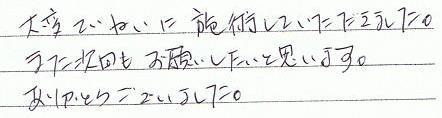 大変ていねいに施術していただきました。
また次回もお願いしたいと思います。
ありがとうございました。